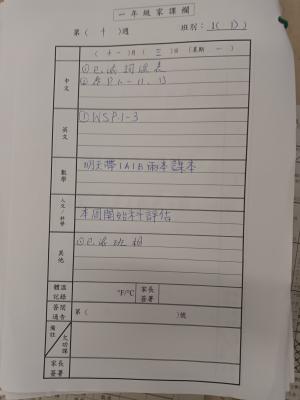 一年級家課欄
第（ 十 ）週 班別：1( 1 )
（十一）月（ 三 ）日（星期 一 ）
中文
①已派詞語表
②
英文
①WSP.1-3
數學
明天帶1A1B兩本課本
人文/科學
本周開始科評估
其他
①已派班相
體溫記錄
°F/°C
家長簽署
答閱通告
第（ ）號
備註
欠功課
家長簽署